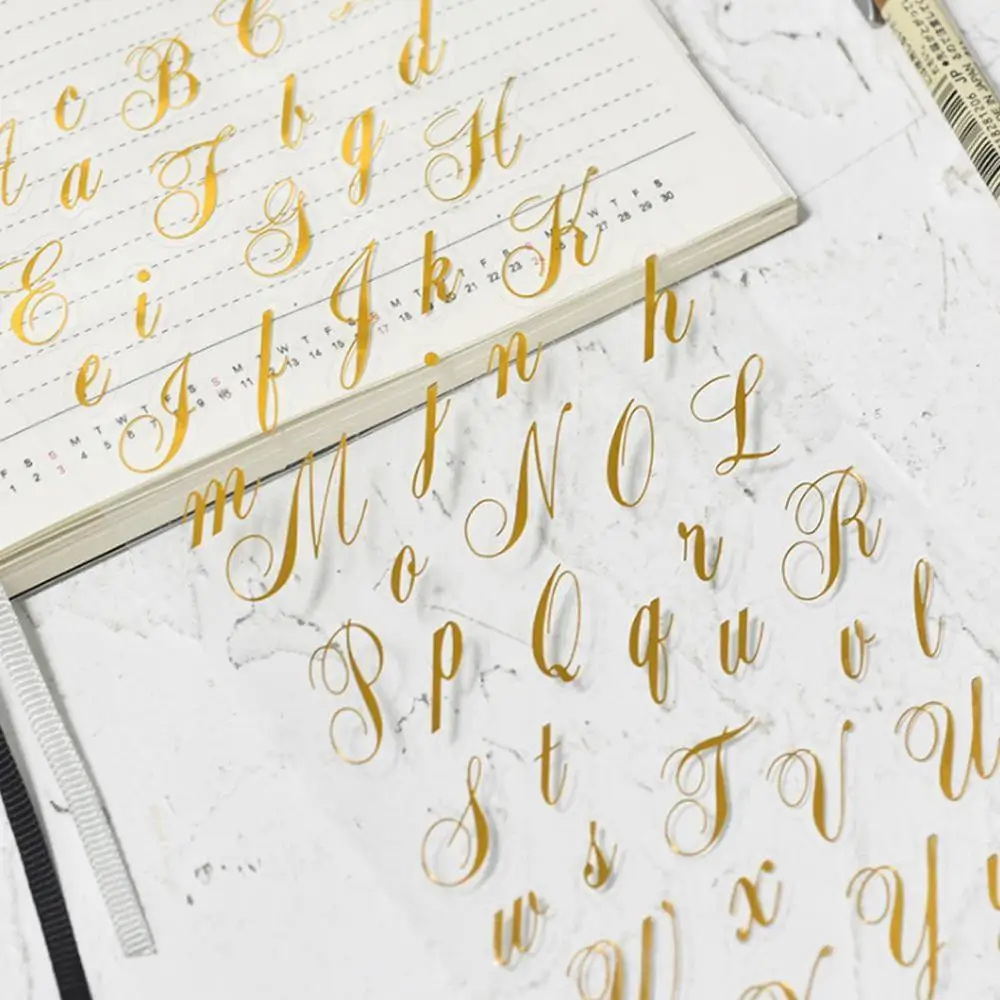 c B C
A a b d
F g H
E i G
e f J k K
F S S M T W T F S S M T W T F S M T T F S M T W T F S
1 2 3 4 5 6 9 10 11 12 13 14 15 17 18 20 21 22 23 26 27 28 29 30
I j n h
m M N O L
o r R
P p Q q u v l
S t T V U
s x Y
w W
JP
IN JAPAN
18281206